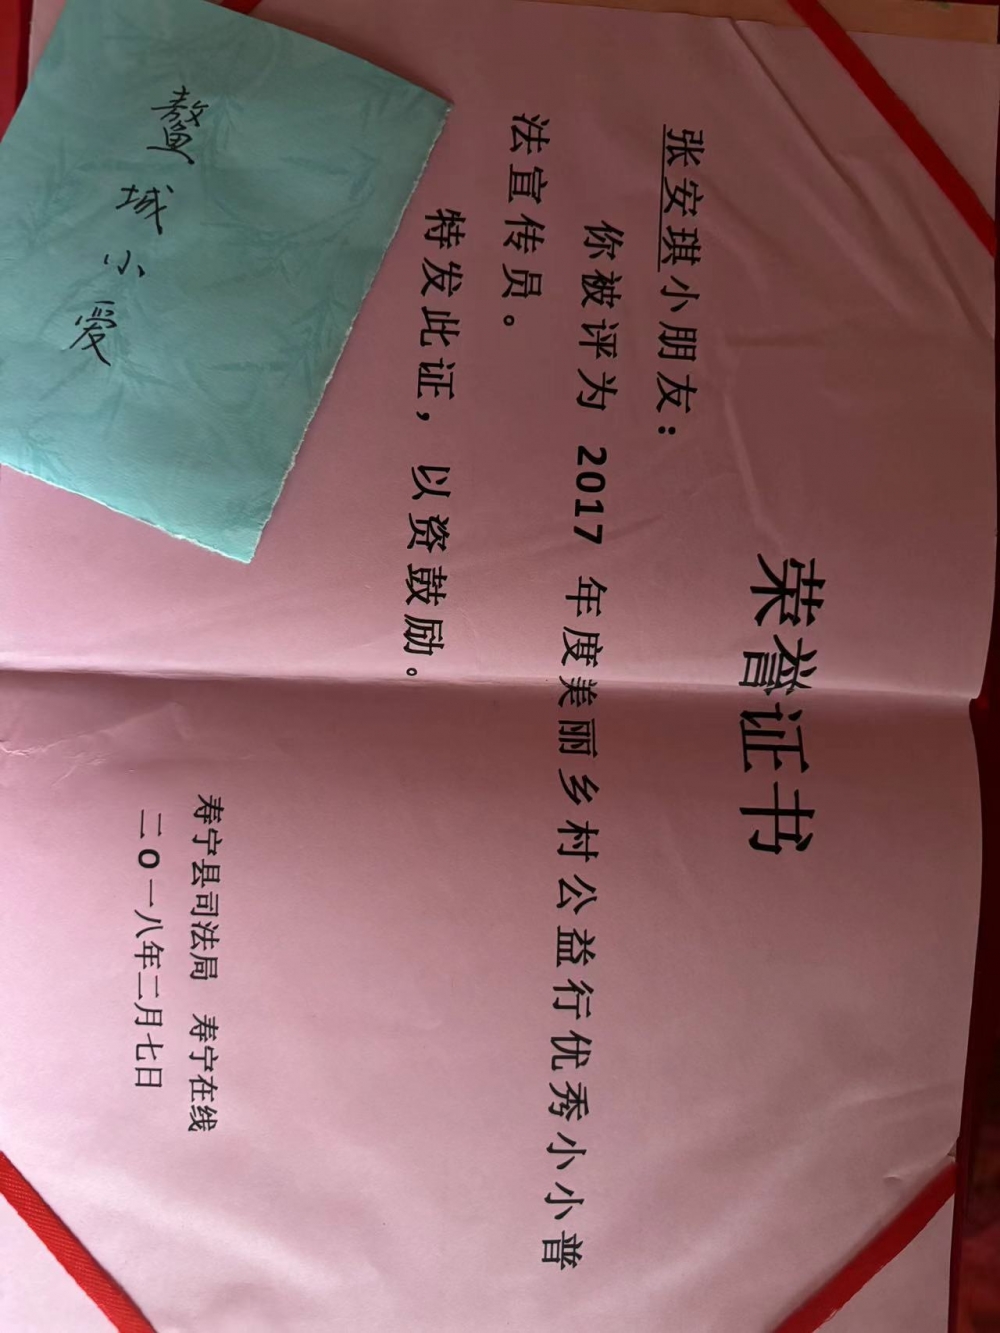 荣誉证书
张安琪小朋友：
你被评为 2017 年度美丽乡村公益行优秀小小普
法宣传员。
特发此证，以资鼓励。
寿宁县司法局 寿宁在线
二0一八年二月七日
鳌城小爱